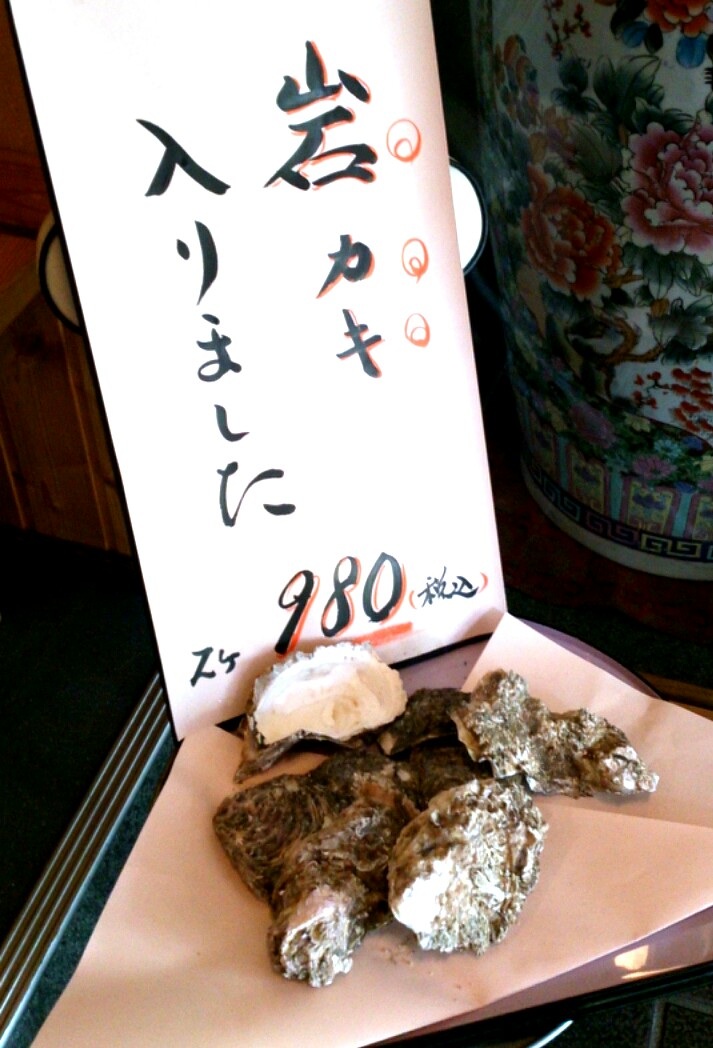 岩カキ
入りました
２ヶ
980(税込)